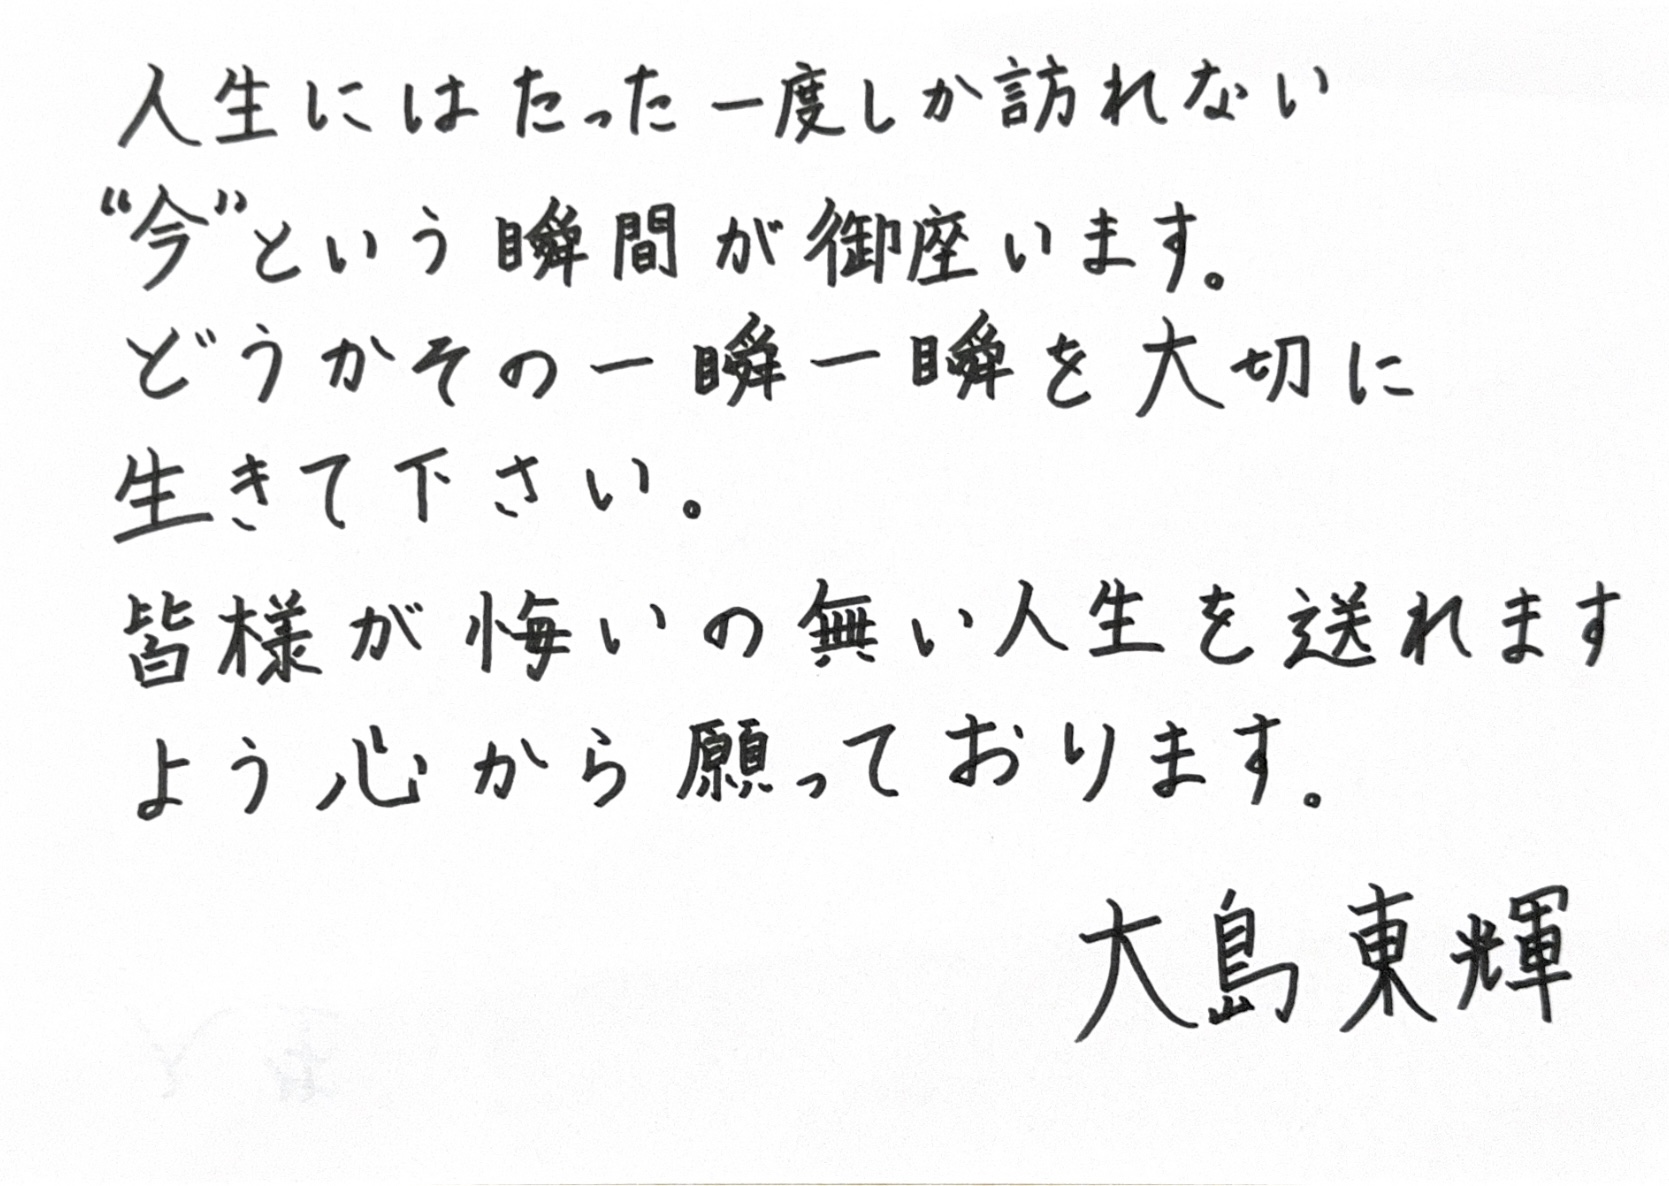 人生にはたった一度しか訪れない
“今”という瞬間が御座います。
どうかその一瞬一瞬を大切に
生きて下さい。
皆様が悔いの無い人生を送れます
よう心から願っております。
大島東輝